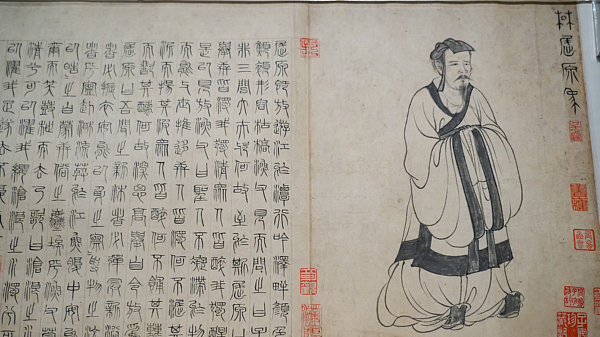 楚屈原象
屈原既放游江於潭行吟澤畔顏色
顦顇形容枯槁漁父見而問之曰子
非三閭大夫與何故至於斯屈原曰
舉世皆濁我獨清人皆醉我獨醒
是以見放漁父曰聖人不凝滯於物
而能與世推迻人皆濁何不淈其
泥而揚其波人皆醉何不餔其
而歠其醨何故深思高舉自令放
屈原曰吾聞之新沐者必彈冠新浴
者必振衣安能以身之察察受物之汶汶
者乎寧赴湘流葬於江魚腹中安能
以皓皓之白蒙世俗之塵埃乎漁父
爾而笑鼓枻而去乃歌曰滄浪之水
清兮可以濯我纓滄浪之水濁兮可
以濯我足遂去不復